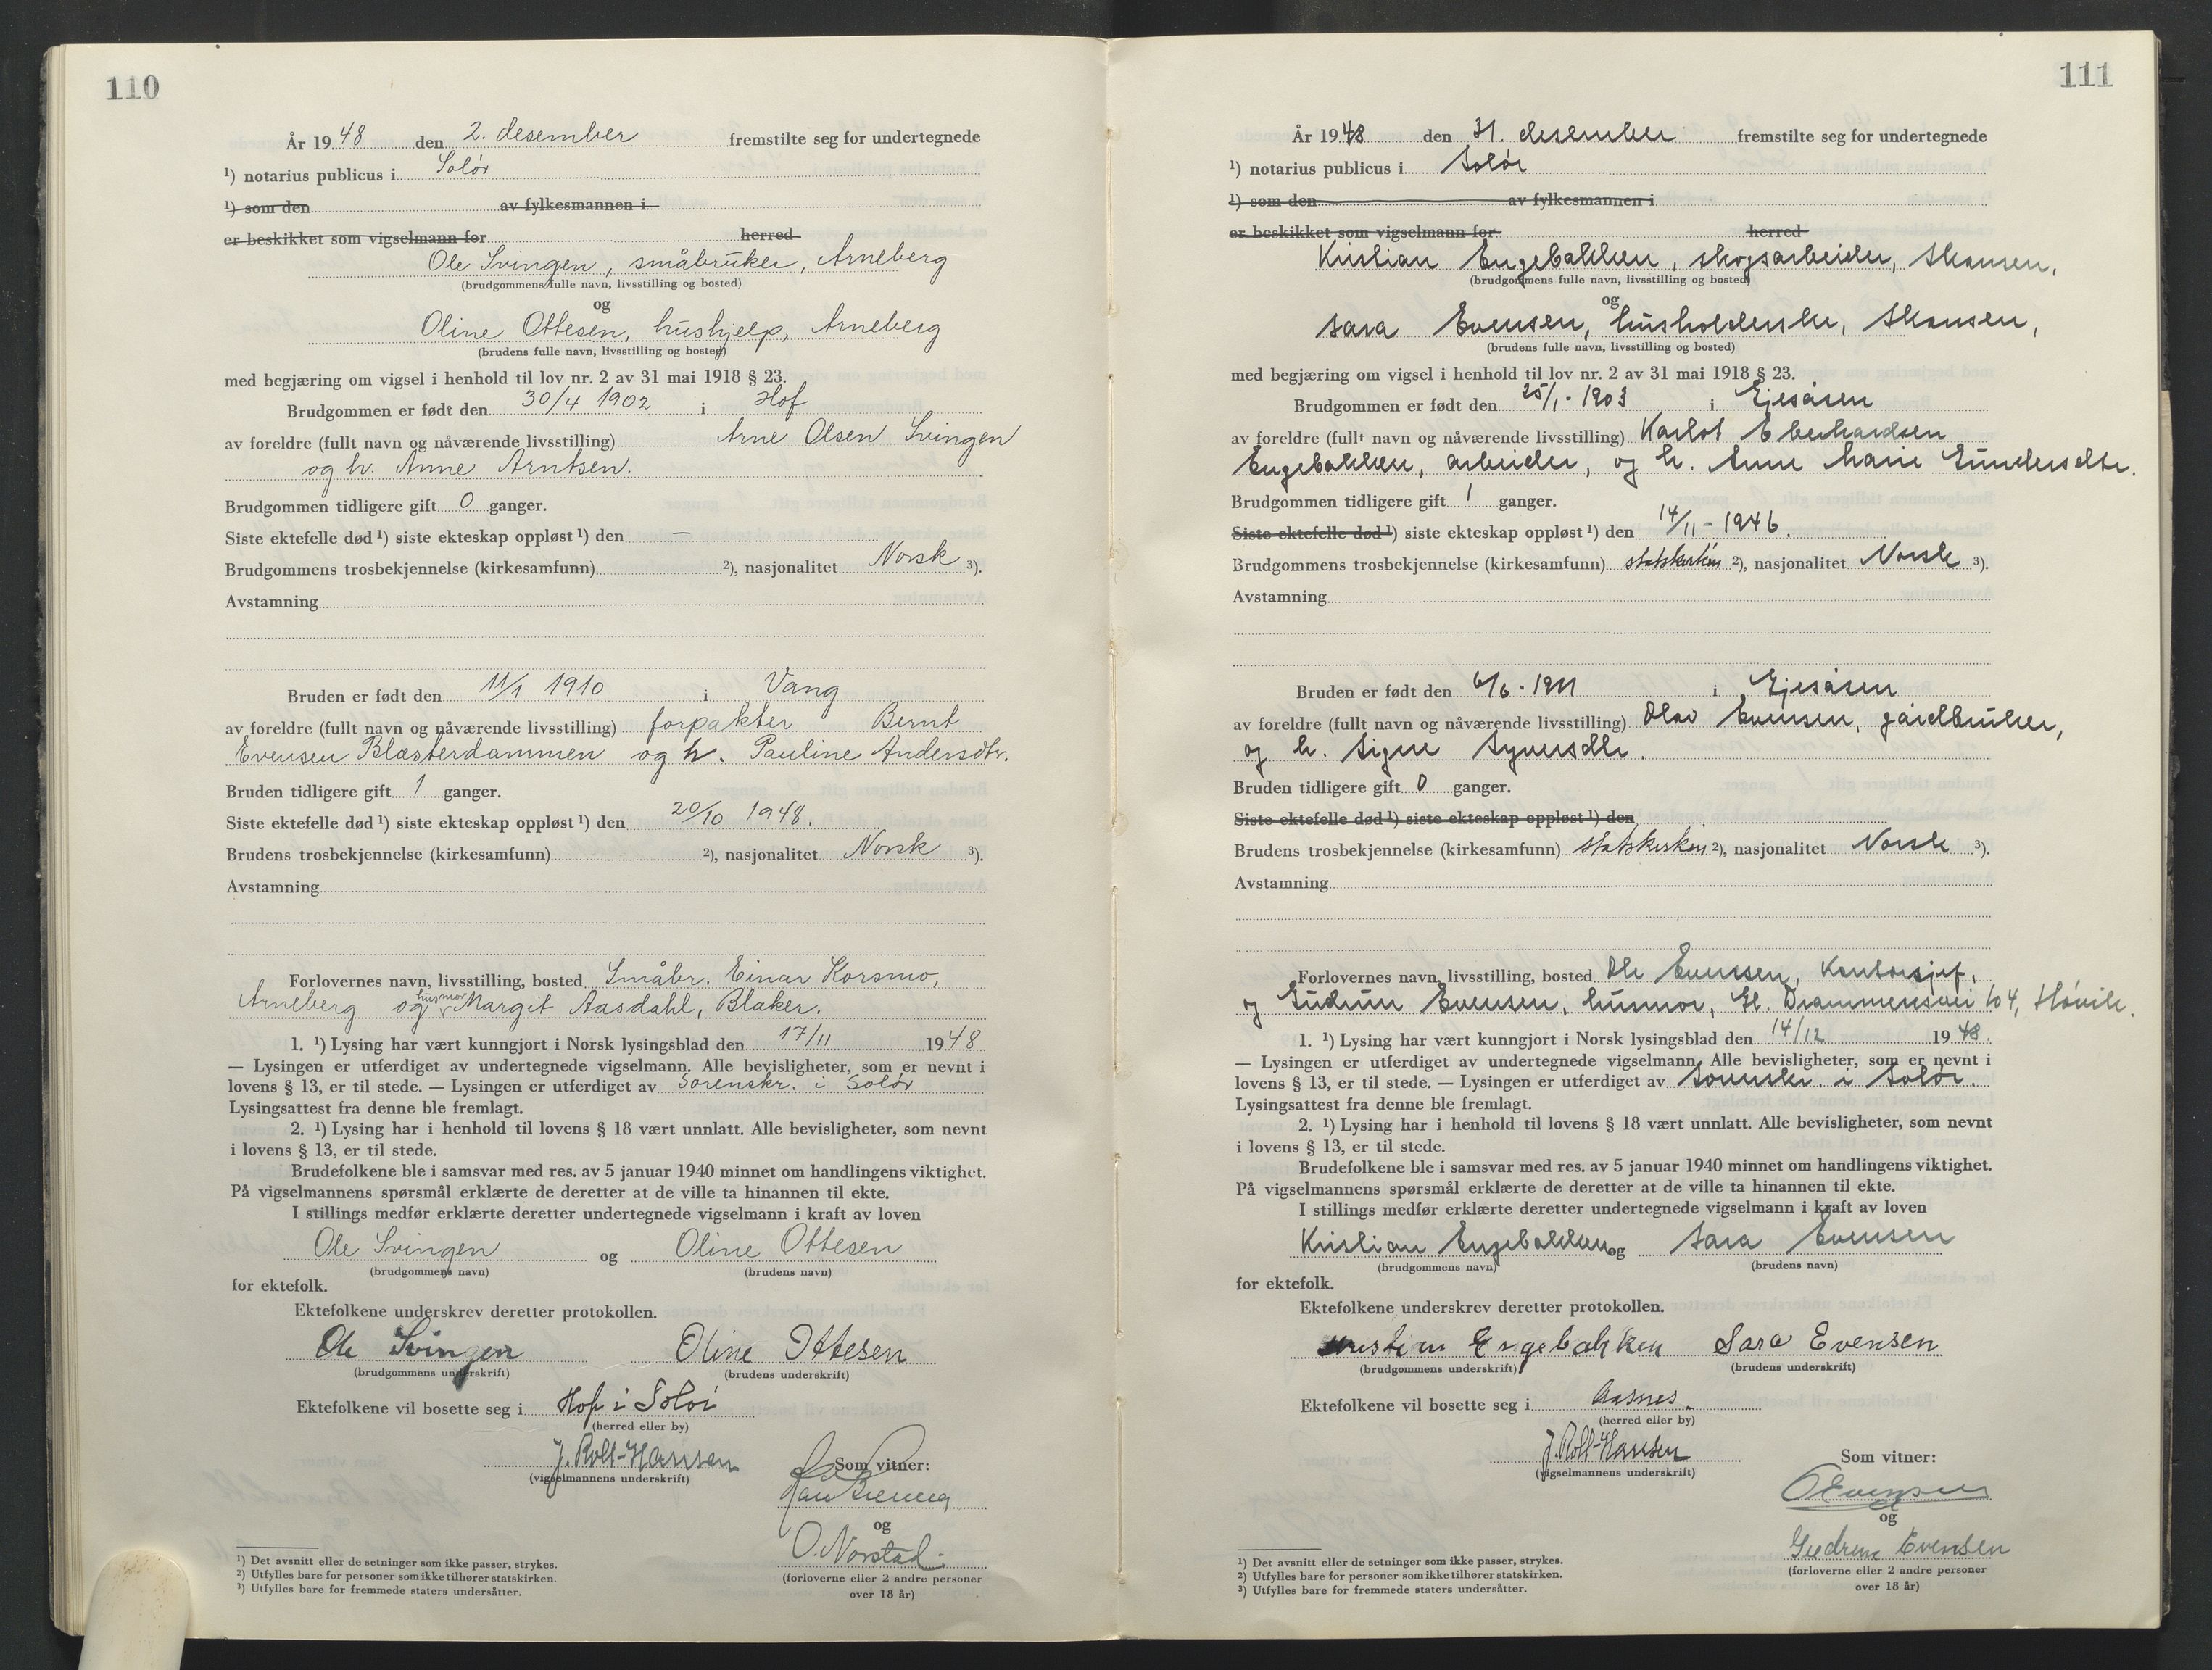 110
År 19 48 den 2. desember fremstilte seg for undertegnede
¹) notarius publicus i Solør
¹) som den av fylkesmannen i
er beskikket som vigselmann for herred
Ole Svingen, småbruker, Arneberg
(brudgommens fulle navn, livsstilling og bosted)
og
Oline Ottesen, hushjelp, Arneberg
(brudens fulle navn, livsstilling og bosted)
med begjæring om vigsel i henhold til lov nr. 2 av 31 mai 1918 § 23.
Brudgommen er født den 30/4 1902 i Hof
av foreldre (fullt navn og nåværende livsstilling) Arne Olsen Svingen
og h. Anne Arntsen.
Brudgommen tidligere gift 0 ganger.
Siste ektefelle død ¹) siste ekteskap oppløst ¹) den —
Brudgommens trosbekjennelse (kirkesamfunn) ²), nasjonalitet Norsk ³).
Avstamning
Bruden er født den 11/1 1910 i Vang
av foreldre (fullt navn og nåværende livsstilling) forpakter Bernt
Evensen Blæsterdammen og h. Pauline Andersdtr.
Bruden tidligere gift 1 ganger.
Siste ektefelle død ¹) siste ekteskap oppløst ¹) den 20/10 1948.
Brudens trosbekjennelse (kirkesamfunn) ²), nasjonalitet Norsk ³).
Avstamning
Forlovernes navn, livsstilling, bosted Småbr. Einar Korsmo,
Arneberg og husmor Margit Aasdahl, Blaker.
1. ¹) Lysing har vært kunngjort i Norsk lysingsblad den 17/11 19 48
— Lysingen er utferdiget av undertegnede vigselmann. Alle bevisligheter, som er nevnt i
lovens § 13, er til stede. — Lysingen er utferdiget av Sorenskr. i Solør
Lysingsattest fra denne ble fremlagt.
2. ¹) Lysing har i henhold til lovens § 18 vært unnlatt. Alle bevisligheter, som nevnt
i lovens § 13, er til stede.
Brudefolkene ble i samsvar med res. av 5 januar 1940 minnet om handlingens viktighet.
På vigselmannens spørsmål erklærte de deretter at de ville ta hinannen til ekte.
I stillings medfør erklærte deretter undertegnede vigselmann i kraft av loven
Ole Svingen og Oline Ottesen
(brudgommens navn) (brudens navn)
for ektefolk.
Ektefolkene underskrev deretter protokollen.
Ole Svingen Oline Ottesen
(brudgommens underskrift) (brudens underskrift)
Ektefolkene vil bosette seg i Hof i Solør
(herred eller by)
J. Roll-Hansen
(vigselmannens underskrift)
Som vitner:
og
O. Norstad.
(forloverne eller 2 andre personer
over 18 år)
¹) Det avsnitt eller de setninger som ikke passer, strykes.
²) Utfylles bare for personer som ikke tilhører statskirken.
³) Utfylles bare for fremmede staters undersåtter.
111
År 19 48 den 31. desember fremstilte seg for undertegnede
¹) notarius publicus i Solør
¹) som den av fylkesmannen i
er beskikket som vigselmann for herred
Kristian Engebakken, skogsarbeider, Skansen,
(brudgommens fulle navn, livsstilling og bosted)
og
Sara Evensen, husholderske, Skansen,
(brudens fulle navn, livsstilling og bosted)
med begjæring om vigsel i henhold til lov nr. 2 av 31 mai 1918 § 23.
Brudgommen er født den 25/1 - 1903 i Gjesåsen
av foreldre (fullt navn og nåværende livsstilling) Karlot Eberhardsen
Engebakken, arbeider, og h. Anne Marie Gundersdtr.
Brudgommen tidligere gift 1 ganger.
Siste ektefelle død ¹) siste ekteskap oppløst ¹) den 14/11 - 1946.
Brudgommens trosbekjennelse (kirkesamfunn) statskirken ²), nasjonalitet Norsk ³).
Avstamning
Bruden er født den 6/6 - 1911 i Gjesåsen
av foreldre (fullt navn og nåværende livsstilling) Olav Evensen, gårdbruker,
og h. Signe Syversdtr.
Bruden tidligere gift 0 ganger.
Siste ektefelle død ¹) siste ekteskap oppløst ¹) den
Brudens trosbekjennelse (kirkesamfunn) statskirken ²), nasjonalitet Norsk ³).
Avstamning
Forlovernes navn, livsstilling, bosted Ole Evensen, kontorsjef,
og Gudrun Evensen, husmor, Gl. Drammensvei 104, Høvik.
1. ¹) Lysing har vært kunngjort i Norsk lysingsblad den 14/12 19 48.
— Lysingen er utferdiget av undertegnede vigselmann. Alle bevisligheter, som er nevnt i
lovens § 13, er til stede. — Lysingen er utferdiget av Sorenskr. i Solør.
Lysingsattest fra denne ble fremlagt.
2. ¹) Lysing har i henhold til lovens § 18 vært unnlatt. Alle bevisligheter, som nevnt
i lovens § 13, er til stede.
Brudefolkene ble i samsvar med res. av 5 januar 1940 minnet om handlingens viktighet.
På vigselmannens spørsmål erklærte de deretter at de ville ta hinannen til ekte.
I stillings medfør erklærte deretter undertegnede vigselmann i kraft av loven
Kristian Engebakken og Sara Evensen
(brudgommens navn) (brudens navn)
for ektefolk.
Ektefolkene underskrev deretter protokollen.
Kristian Engebakken Sara Evensen
(brudgommens underskrift) (brudens underskrift)
Ektefolkene vil bosette seg i Aasnes.
(herred eller by)
J. Roll-Hansen
(vigselmannens underskrift)
Som vitner:
O Evensen
og
Gudrun Evensen
(forloverne eller 2 andre personer
over 18 år)
¹) Det avsnitt eller de setninger som ikke passer, strykes.
²) Utfylles bare for personer som ikke tilhører statskirken.
³) Utfylles bare for fremmede staters undersåtter.